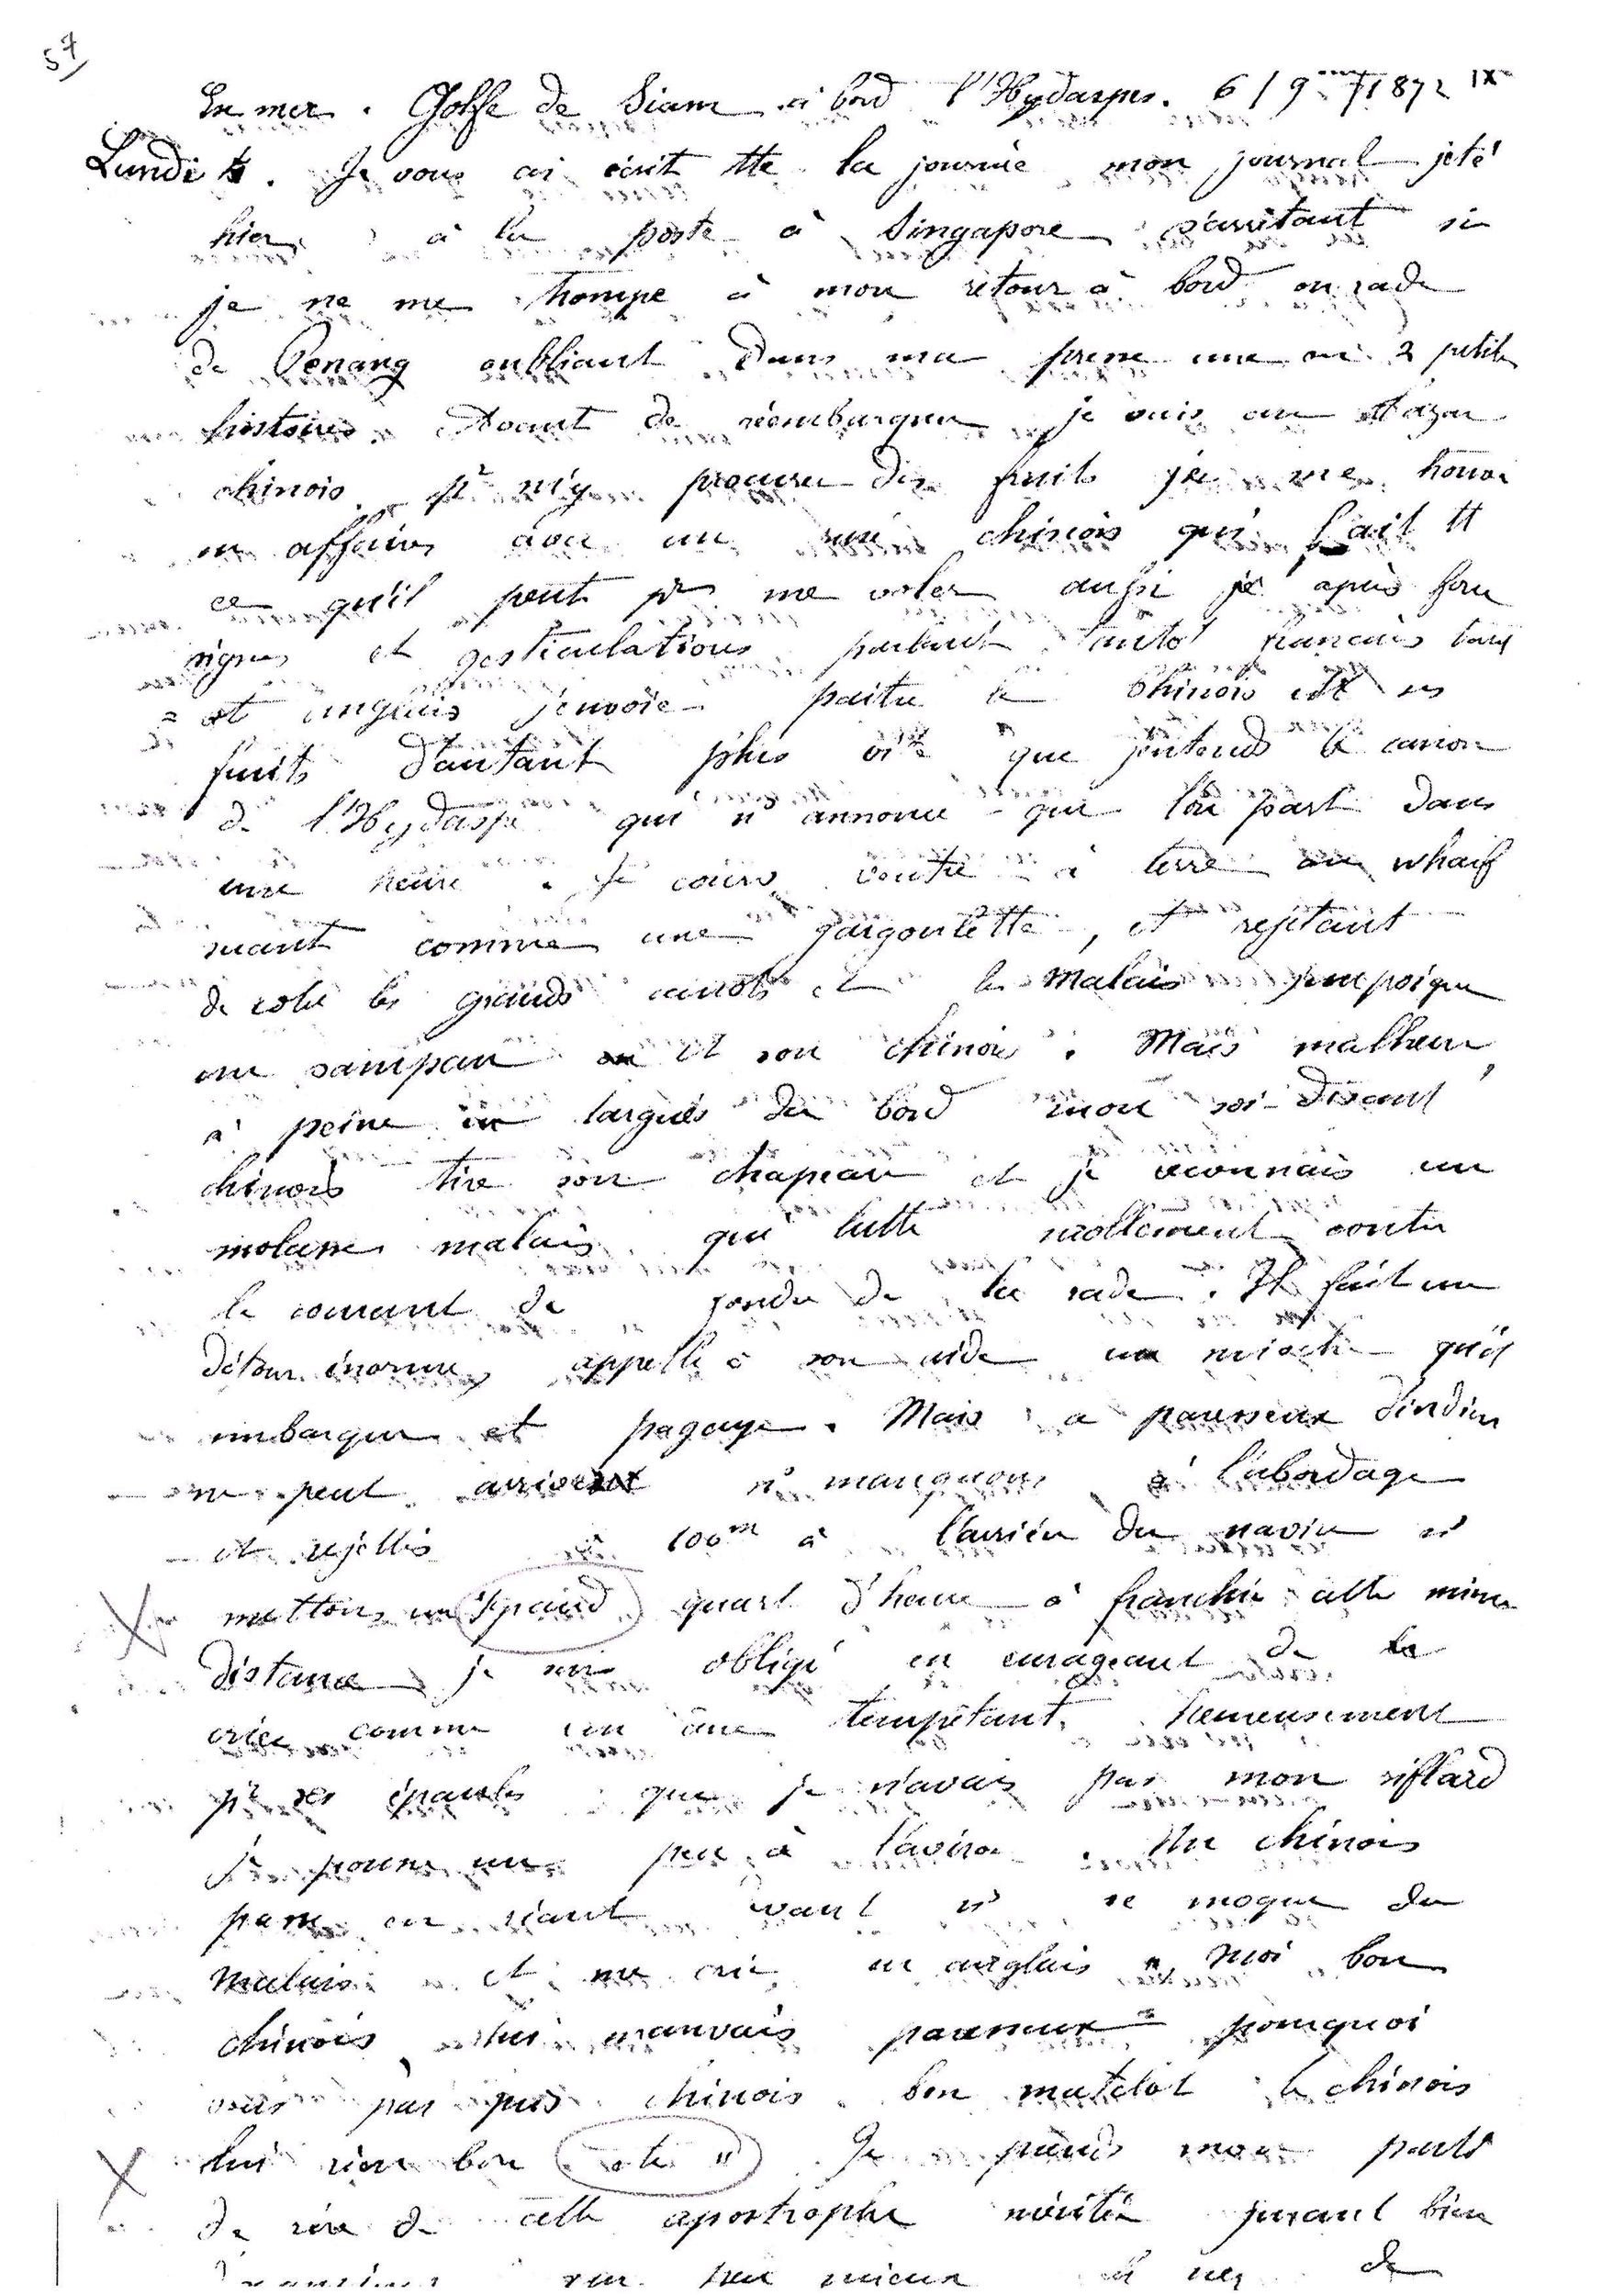 57
En mer. Golfe de Siam à bord l'Hydaspes. 6/9 1872 IX
Lundi 4. Je vous ai écrit tte la journée mon journal jeté
hier à la poste à Singapore s'arrêtant si
je ne me trompe à mon retour à bord en rade
de Penang oubliant dans ma une ou 2 petites
histoires. Avant de réembarquer je vais au
chinois pr m'y procurer des fruits je me trouve
en affaires avec un rusé chinois qui fait tt
ce qu'il peut pr me voler aussi je après force
signes et gesticulations parlant tantôt français tant
= ôt anglais j'envoie paître le Chinois et ses
fruits d'autant plus vite que j'entends le canon
de l'Hydaspe qui ns annonce que l'on part dans
une heure. Je cours ventre à terre au wharf
suant comme une gargoulette, et rejetant
de côté les grands canots et les Malais j'empoigne
un sampan et son chinois. Mais malheur,
à peine largués du bord mon soi-disant
chinois tire son chapeau et je reconnais un
molasse malais qui lutte mollement contre
le courant de foudre de la rade. Il fait un
détour énorme, appelle à son aide un mioche qu'il
embarque et pagaye. Mais ce paresseux d'indien
ne peut arriver ns manquons à l'abordage
et rejettés à 100m à l'arrière du navire ns
mettons un grand quart d'heure à franchir cette mince
distance je suis obligé en enrageant de
crier comme un âne tempêtant. Heureusement
pr ses épaules que je n'avais pas mon rifflard
je pousse un peu à l'aviron. Un chinois
passe en riant devant ns se moque du
malais et me crie en anglais " Moi bon
chinois lui mauvais paresseux pourquoi
vous pas pris chinois bon matelot le chinois
lui rien bon " Je prends mon parti
de rire de cette apostrophe méritée jurant bien
un peu mieux le nez de